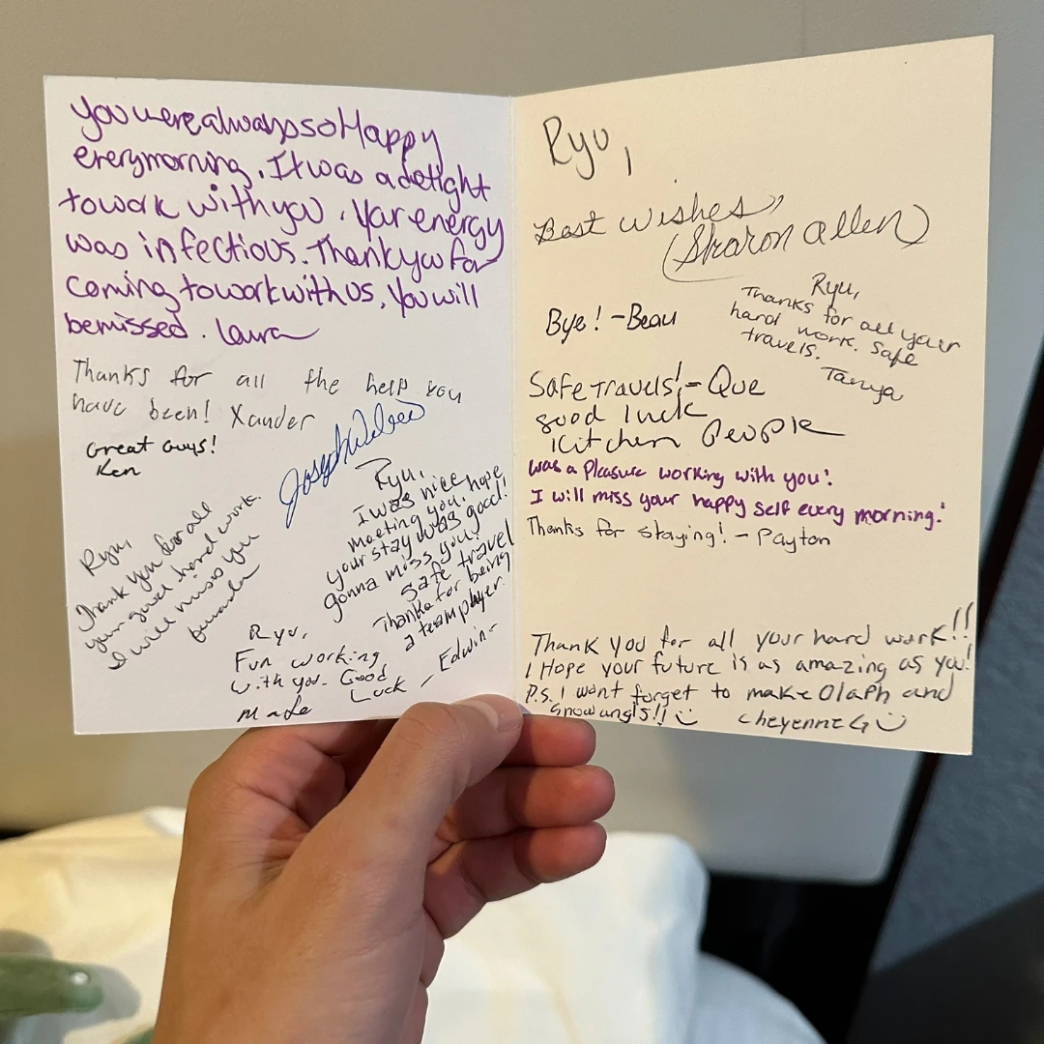 you were always so Happy
every morning. It was a delight
to work with you. Your energy
was infectious. Thank you for
coming to work with us. You will
be missed. Laura
Thanks for all the help you
have been! Xander
Great Guys!
Ken
Joseph
Ryu,
Thank you for all
your good hard work.
I will miss you
Ryu,
I was nice
meeting you, hope
your stay was good!
gonna miss you!
safe travel
Thanks for being
a team player.
- Edwin -
Ryu,
Fun working
with you. Good
Luck
Ryu,
Best wishes,
(Sharon Allen)
Bye! - Beau
Ryu,
Thanks for all your
hard work. Safe
travels.
Tanya
Safe Travels! - Que
good luck
Kitchen People
was a pleasure working with you!
I will miss your happy self every morning!
Thanks for staying! - Payton
Thank you for all your hard work!!
I Hope your future is as amazing as you!
P.S. I wont forget to make Olaph and
Snowangls!! Cheyenne G